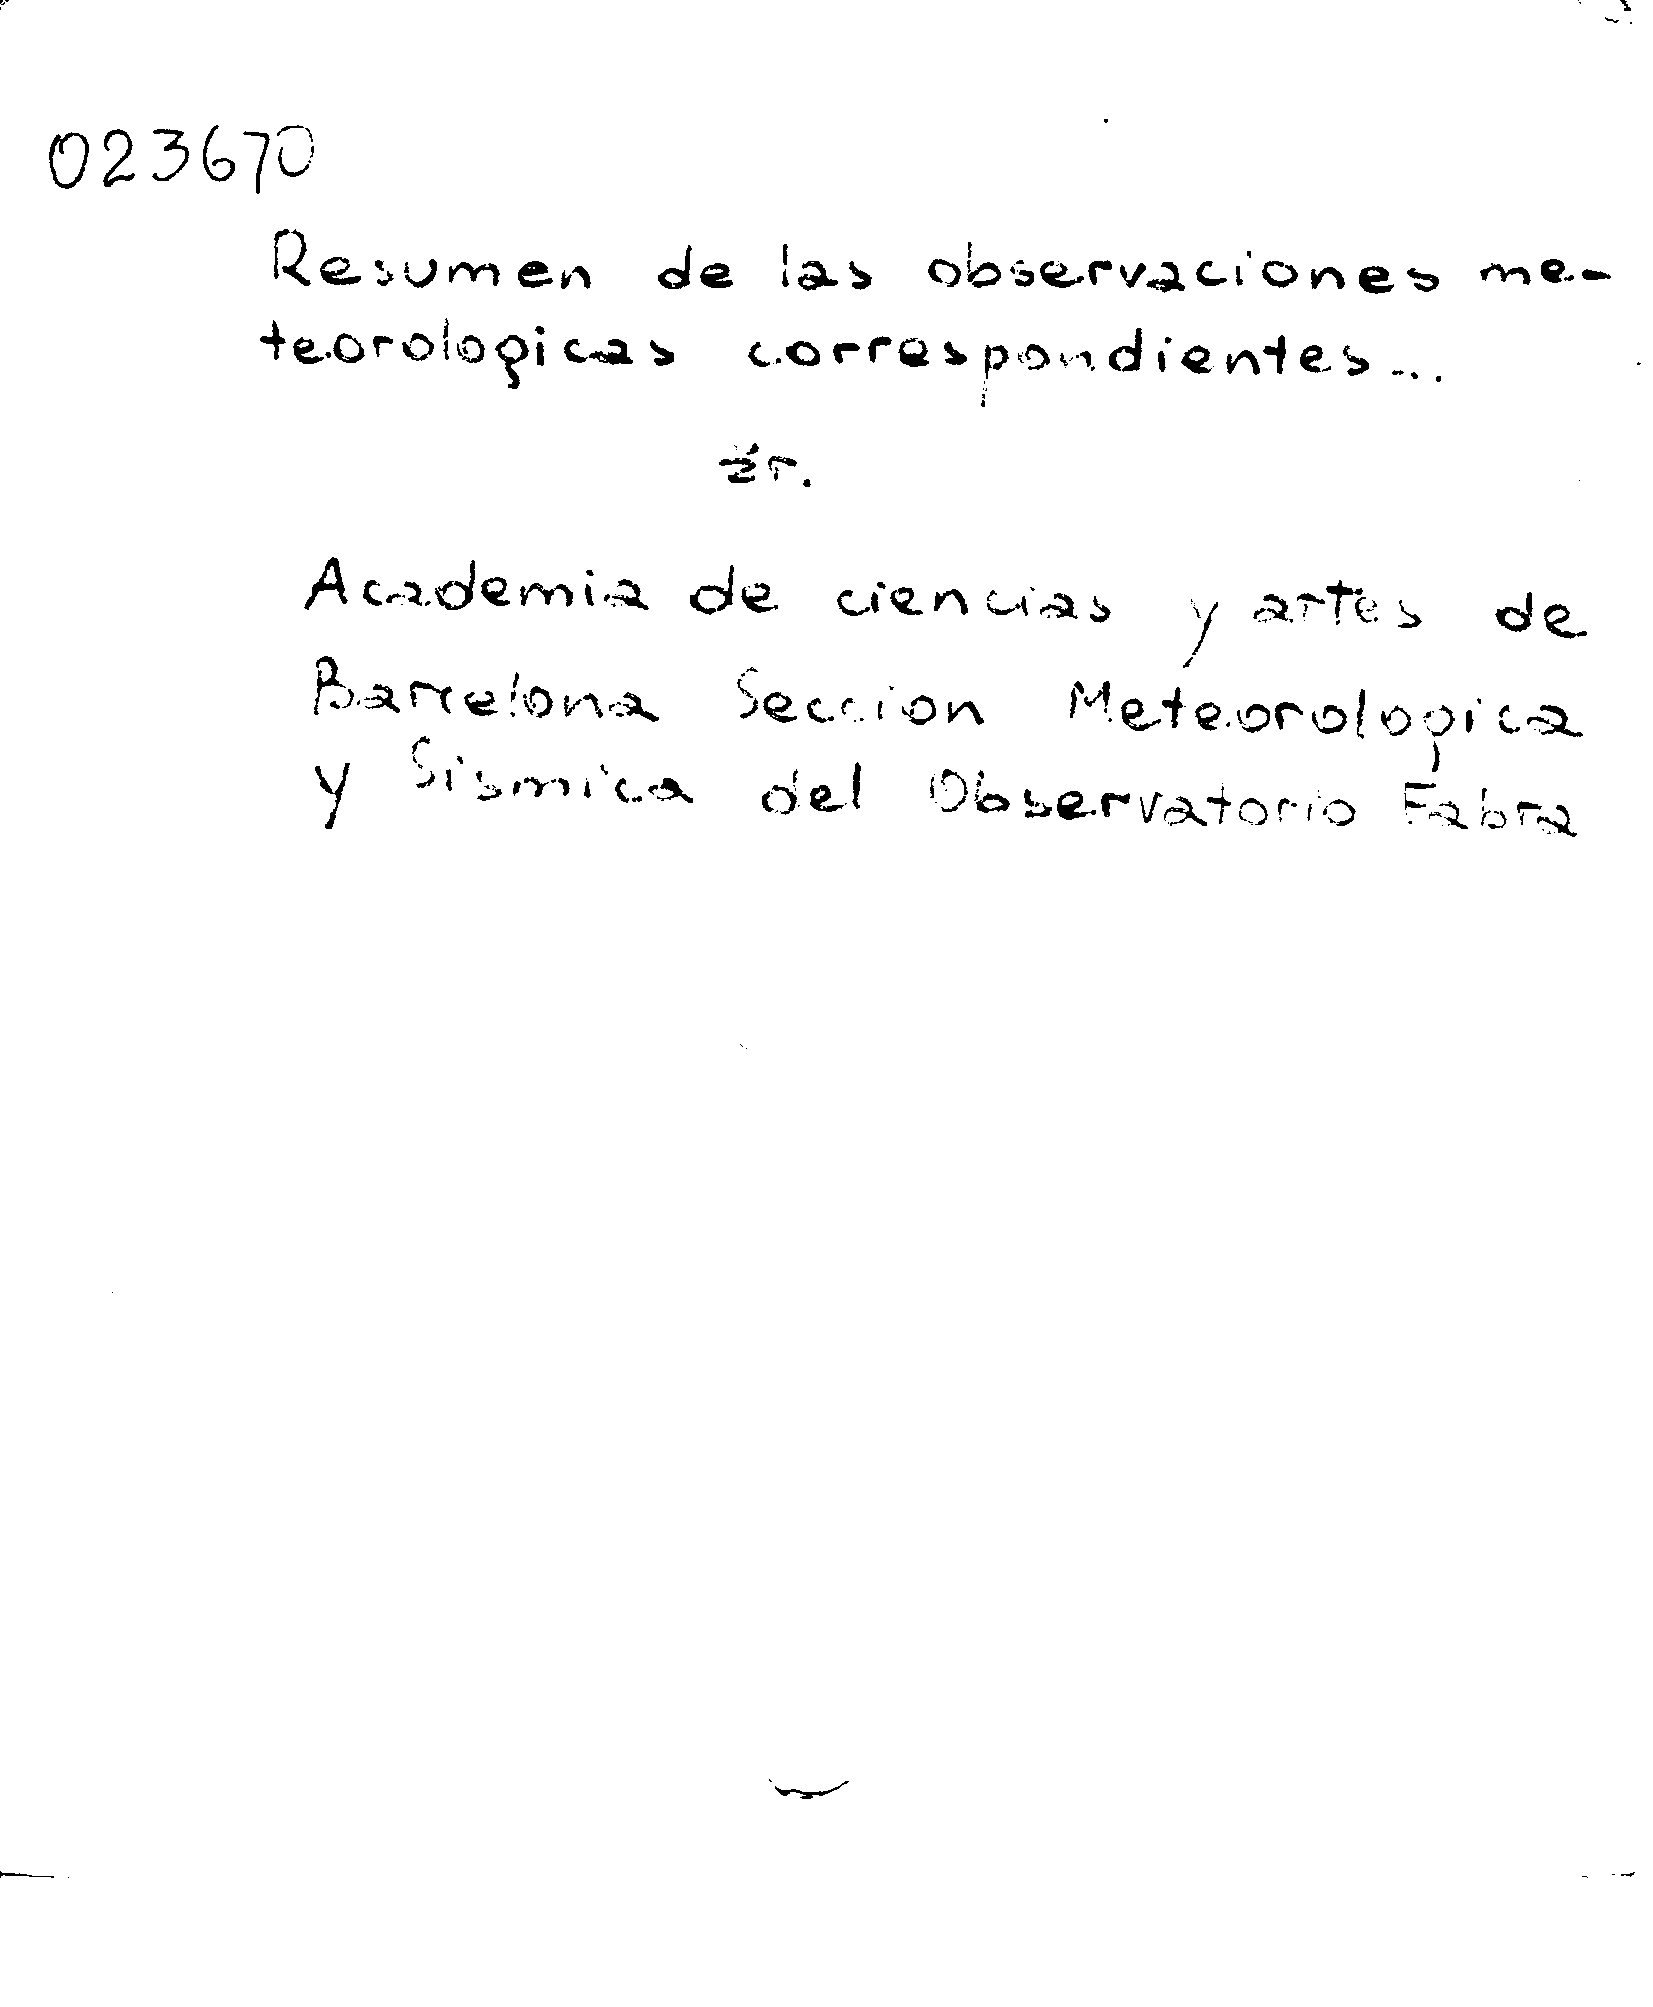 023670
Resumen de las observaciones me-
teorologicas correspondientes...
źr.
Academia de ciencias y artes de
Barcelona Seccion Meteorologica
y Sismica del Observatorio Fabra